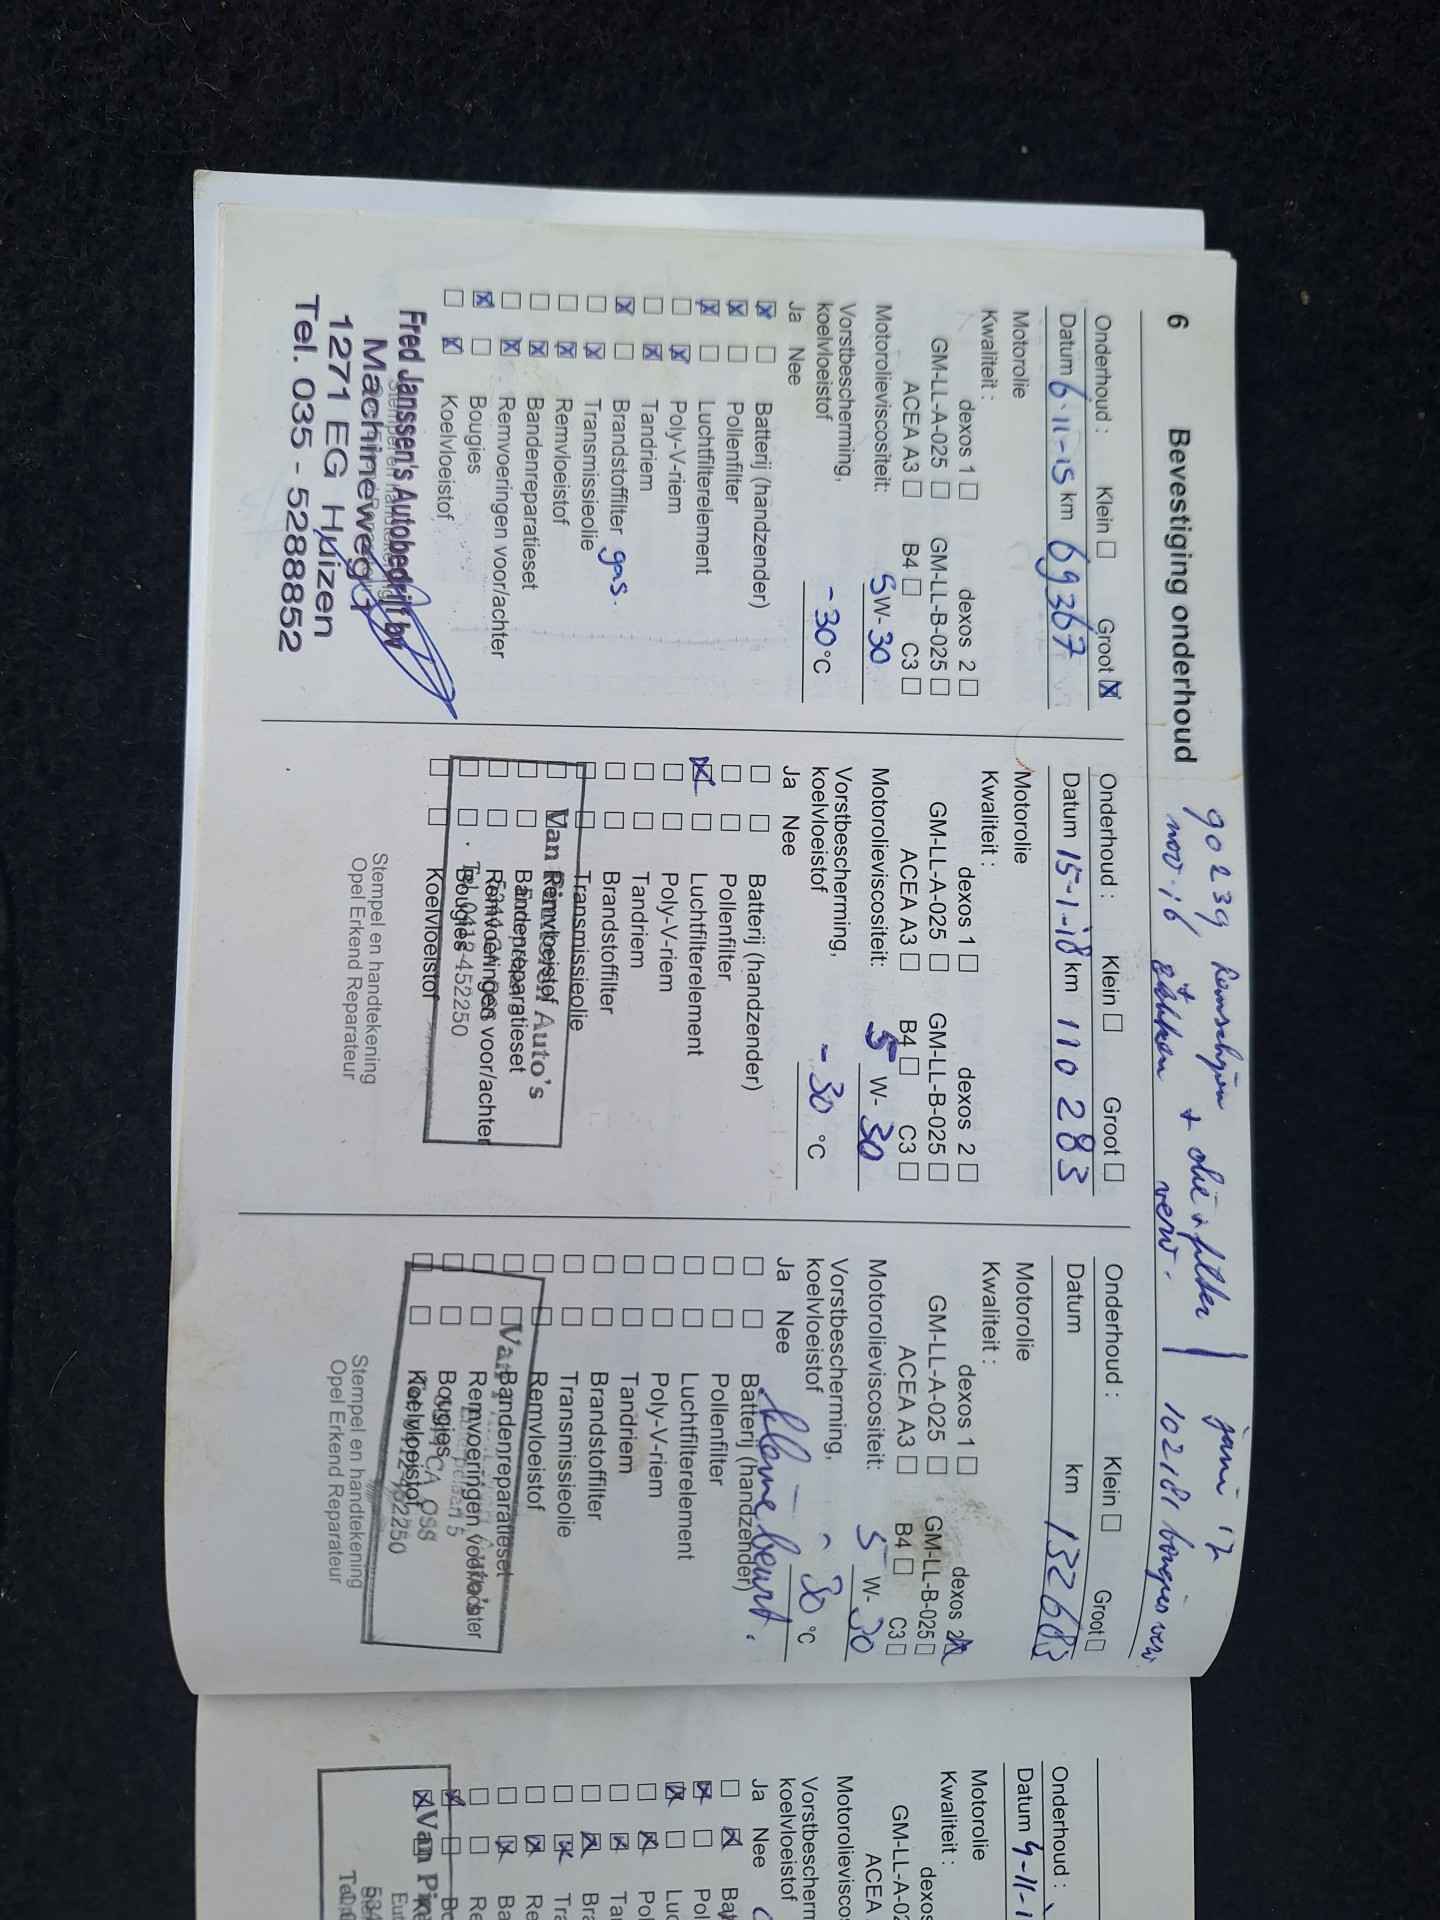 6 Bevestiging onderhoud
90239 remschijven + olie + filter | juni 17
nov-16 + verv. 102181 bougies verv.
Onderhoud : Klein Groot
Datum 6-11-15 km 69367
Motorolie
Kwaliteit :
dexos 1 dexos 2
GM-LL-A-025 GM-LL-B-025
ACEA A3 B4 C3
Motorolieviscositeit: 5W-30
Vorstbescherming,
koelvloeistof -30°C
Ja Nee
Batterij (handzender)
Pollenfilter
Luchtfilterelement
Poly-V-riem
Tandriem
Brandstoffilter gas.
Transmissieolie
Remvloeistof
Bandenreparatieset
Remvoeringen voor/achter
Bougies
Koelvloeistof
Fred Janssen's Autobedrijf bv
Machineweg
1271 EG Huizen
Tel. 035 - 5288852
Onderhoud : Klein Groot
Datum 15-1-18 km 110 283
Motorolie
Kwaliteit :
dexos 1 dexos 2
GM-LL-A-025 GM-LL-B-025
ACEA A3 B4 C3
Motorolieviscositeit: 5 W- 30
Vorstbescherming,
koelvloeistof - 30 °C
Ja Nee
Batterij (handzender)
Pollenfilter
Luchtfilterelement
Poly-V-riem
Tandriem
Brandstoffilter
Transmissieolie
Remvloeistof
Bandenreparatieset
Remvoeringen voor/achter
Bougies
Koelvloeistof
Van Auto's
452250
Stempel en handtekening
Opel Erkend Reparateur
Onderhoud : Klein Groot
Datum km 132683
Motorolie
Kwaliteit :
dexos 1 dexos 2
GM-LL-A-025 GM-LL-B-025
ACEA A3 B4 C3
Motorolieviscositeit: 5 W- 30
Vorstbescherming,
koelvloeistof - 30 °C
Ja Nee
kleine beurt.
Batterij (handzender)
Pollenfilter
Luchtfilterelement
Poly-V-riem
Tandriem
Brandstoffilter
Transmissieolie
Remvloeistof
Bandenreparatieset
Remvoeringen voor/achter
Bougies
Koelvloeistof
Van
CA OSS
Stempel en handtekening
Opel Erkend Reparateur
Onderhoud :
Datum 9-11-1
Motorolie
Kwaliteit :
dexos
GM-LL-A-02
ACEA
Motorolievisco
Vorstbescherm
koelvloeistof
Ja Nee
Bat
Pol
Luc
Pol
Ta
Bra
Tr
Re
Ba
Re
Bo
Van Pi